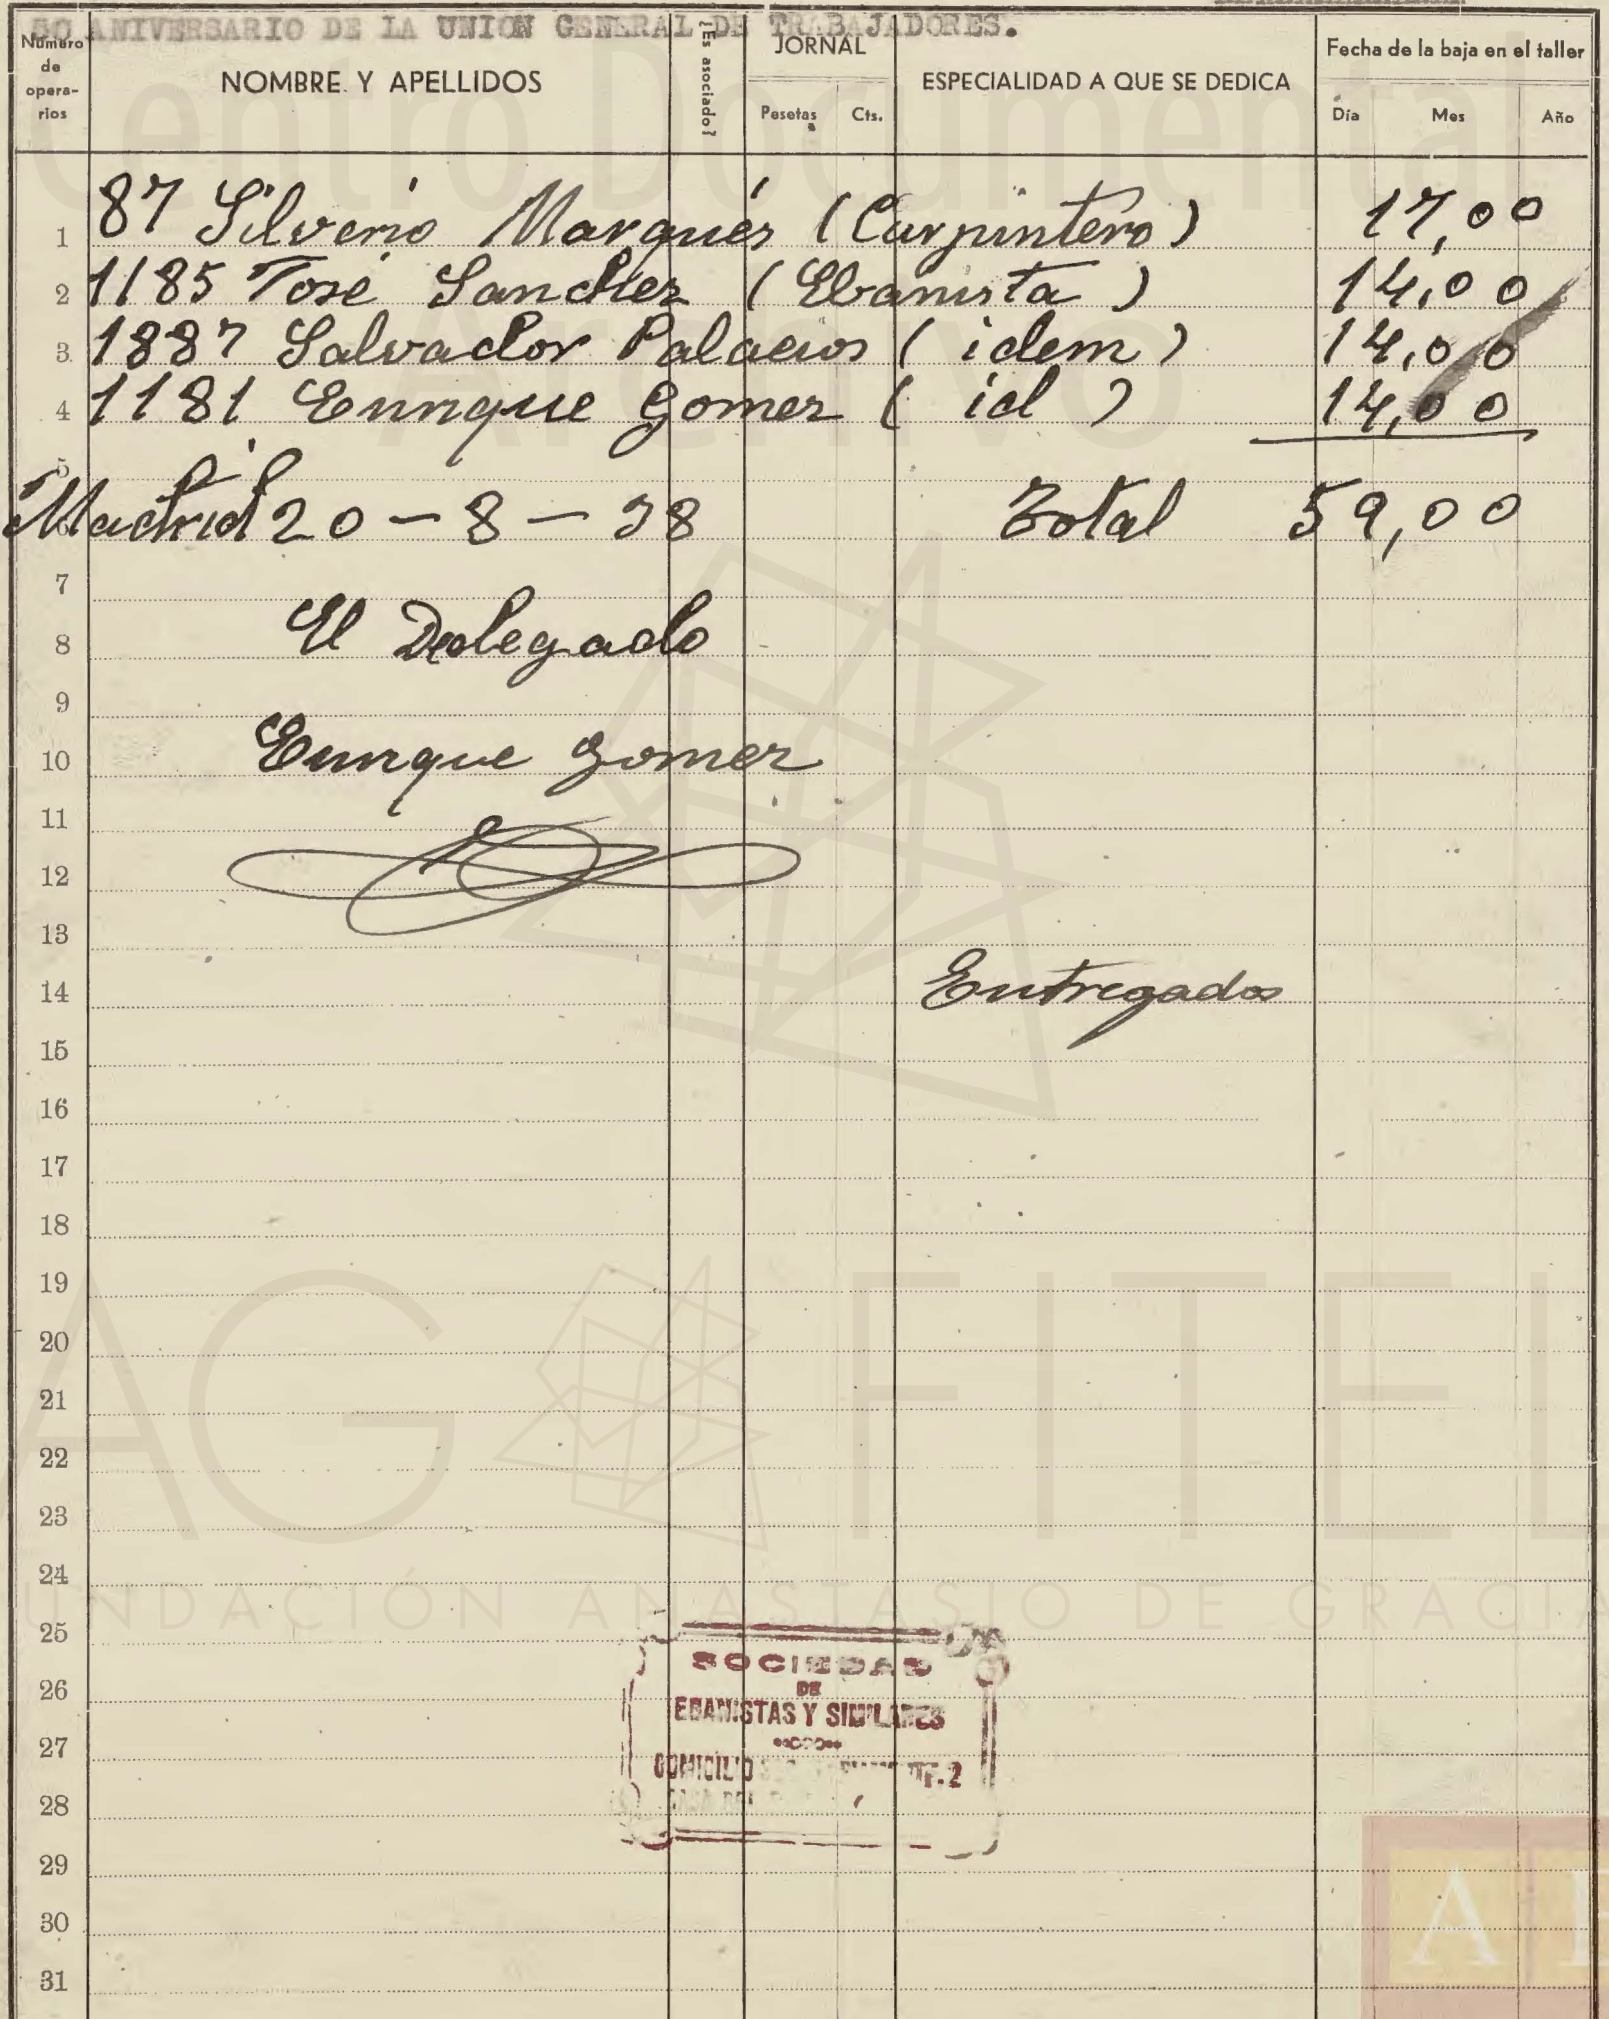 50 ANIVERSARIO DE LA UNION GENERAL DE TRABAJADORES.
Número de opera- rios
NOMBRE Y APELLIDOS
¿Es asociado?
JORNAL
Pesetas Cts.
ESPECIALIDAD A QUE SE DEDICA
Fecha de la baja en el taller
Día Mes Año
1 87 Silverio Marqués (Carpintero) 17,00
2 1185 José Sanchez (Ebanista) 14,00
3 1887 Salvador Palacios (idem) 14,00
4 1181 Enrique Gomez (id) 14,00
5
6 Madrid 20-8-38 Total 59,00
7
8 El Delegado
9
10 Enrique Gomez
11
12
13
14 Entregados
15
16
17
18
19
20
21
22
23
24
25
26
27
28
29
30
31
SOCIEDAD
DE
EBANISTAS Y SIMILARES
DOMICILIO
2
Centro Documental
Archivo
AG FITEL
FUNDACIÓN ANASTASIO DE GRACIA
A